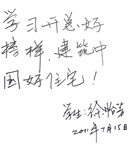 学习开总，好
榜样，建筑中
国好住宅！
学生：徐
2011年7月15日